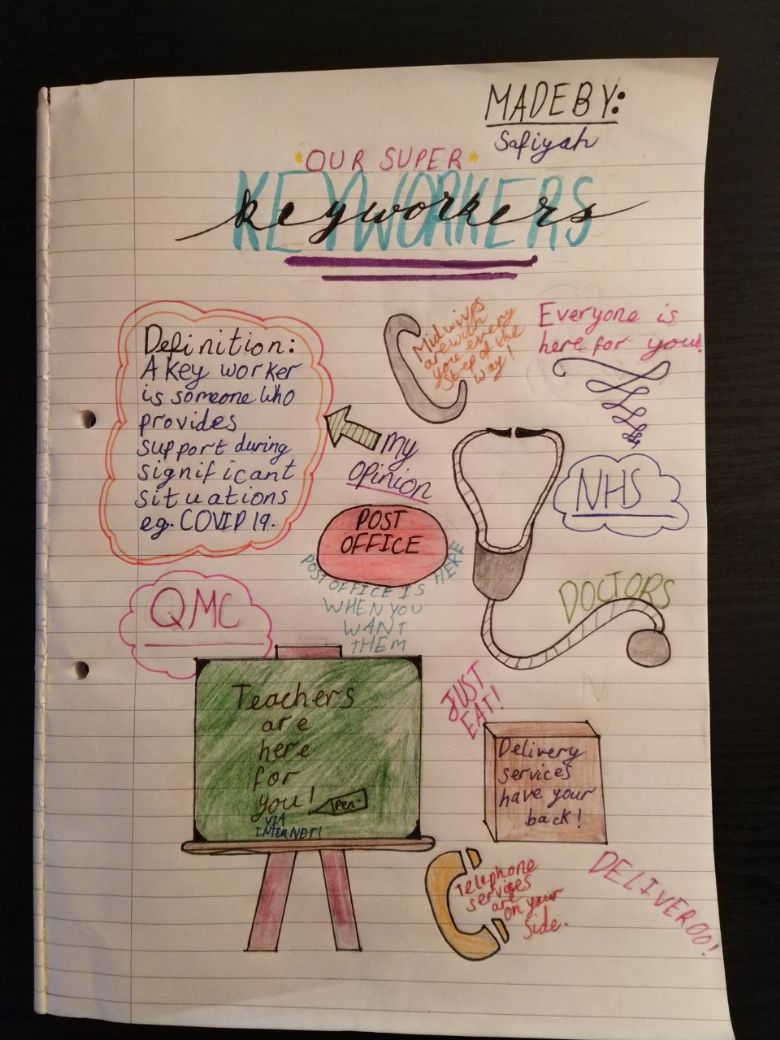 MADE BY:
Safiyah
OUR SUPER
KEYWORKERS
keyworkers
Definition:
A key worker
is someone who
provides
support during
significant
situations
eg. COVID 19.
my
opinion
Midwives
are with
you every
step of the
way!
Everyone is
here for you!
NHS
POST
OFFICE
POST OFFICE IS HERE
WHEN YOU
WANT
THEM
DOCTORS
QMC
Teachers
are
here
for
you!
Pen.
VIA
INTERNET!
JUST
EAT!
Delivery
services
have your
back!
Telephone
services
are
on your
side.
DELIVEROO!